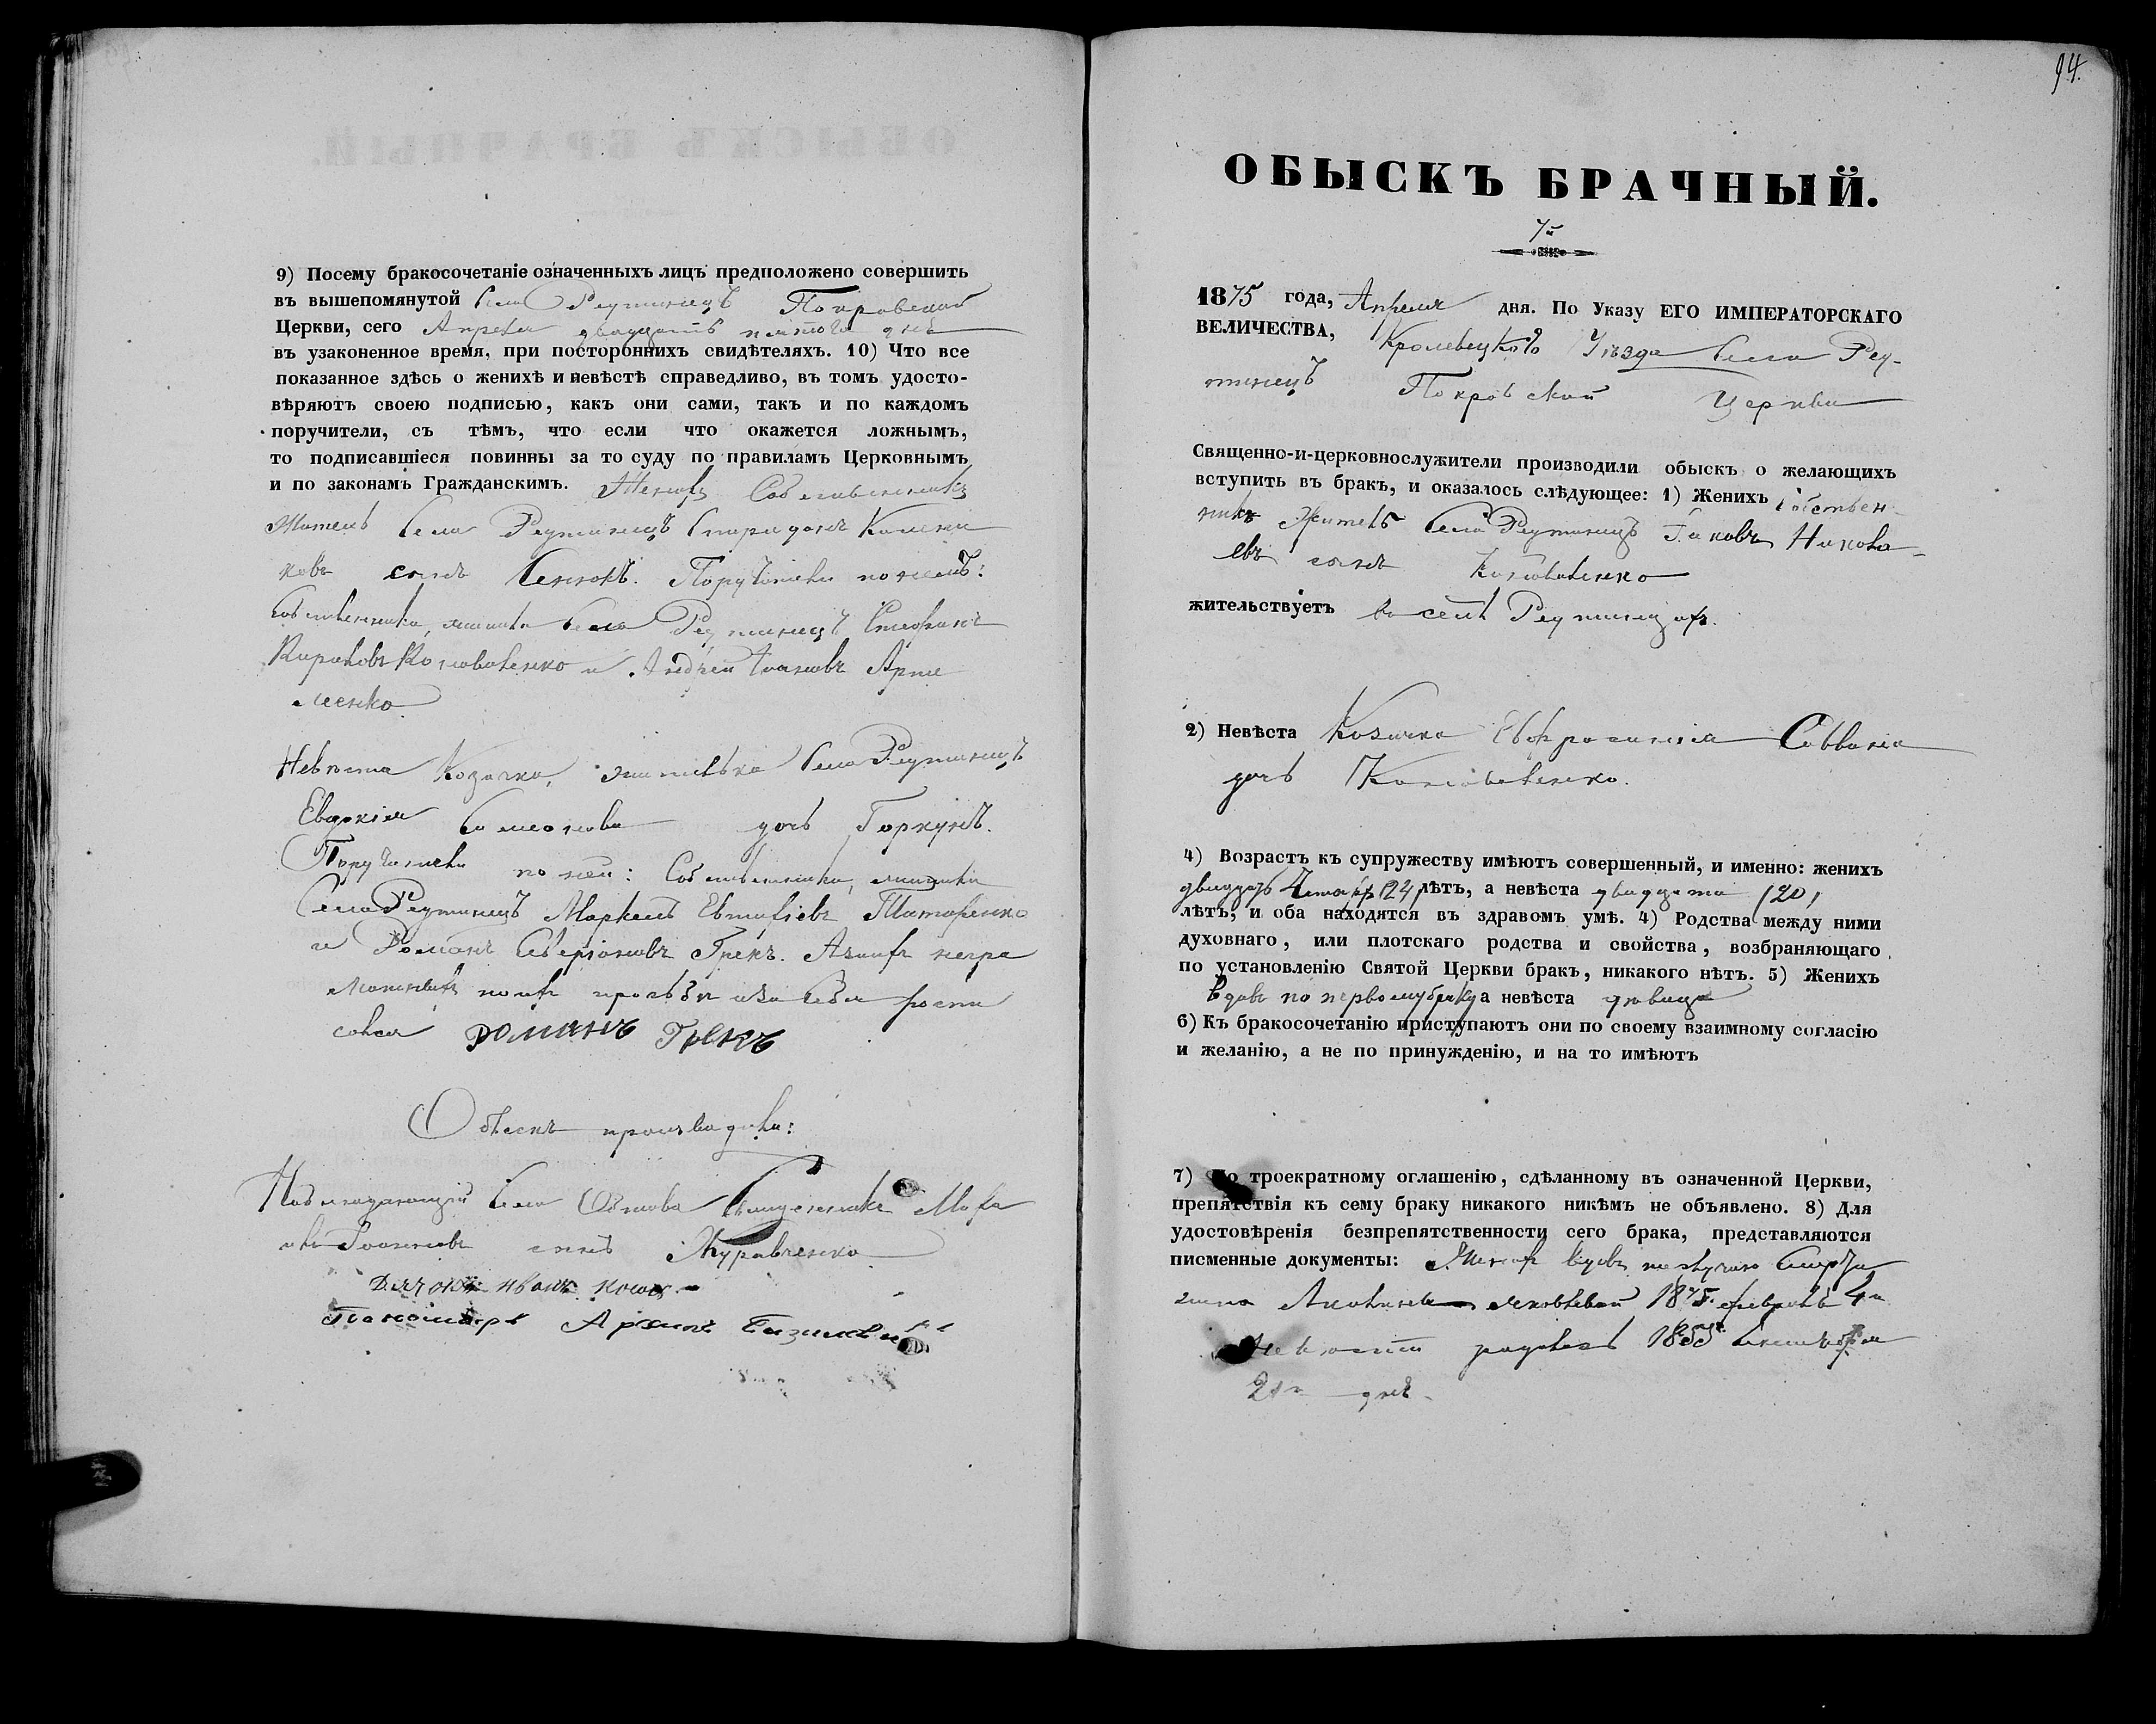 9) Посему бракосочетаніе означенныхъ лицъ предположено совершить
въ вышепомянутой села Реутинецъ Покровской
Церкви, сего Апреля двадцать пятого дня
въ узаконенное время, при постороннихъ свидѣтеляхъ. 10) Что все
показанное здѣсь о женихѣ и невѣстѣ справедливо, въ томъ удосто-
вѣряютъ своею подписью, какъ они сами, такъ и по каждомъ
поручители, съ тѣмъ, что если что окажется ложнымъ,
то подписавшіеся повинны за то суду по правиламъ Церковнымъ
и по законамъ Гражданскимъ. Женихъ Собственникъ
житель села Реутинецъ Спиридонъ
сынъ Поручители по немъ:
Собственники, жители села Реутинецъ Стефанъ
Кириловъ Коноваленко и Андрей Ивановъ Арте
менко
Невѣста Козачка, жителька села Реутинецъ
Евдокія Симеонова дочь Горкунъ.
Поручители по ней: Собственники, жители
села Реутинецъ Маркелъ Евтифіевъ Татаренко
и Романъ Грекъ. А неgра
мотныхъ по ихъ прозьбѣ и за себя роспи
сался Романъ Грекъ
Обыскъ производили:
Наблюдающій села Священникъ
сынъ Журавченко
Дячокъ Иванъ
Паномарь Архипъ
94.
ОБЫСКЪ БРАЧНЫЙ.
7й
1875 года, Апреля дня. По Указу ЕГО ИМПЕРАТОРСКАГО
ВЕЛИЧЕСТВА, Кролевецкого Уѣзда села Реу-
тинецъ Покровской Церкви
Священно-и-церковнослужители производили обыскъ о желающихъ
вступить въ бракъ, и оказалось слѣдующее: 1) Женихъ Собствен
никъ житель села Реутинецъ Іаковъ Никола-
евъ сынъ Коноваленко
жительствуетъ въ селѣ Реутинцахъ.
2) Невѣста Козачка Евфросинія Саввина
дочь Коноваленко.
4) Возрастъ къ супружеству имѣютъ совершенный, и именно: женихъ
двадцать Четыре (24) лѣтъ, а невѣста двадцати (20)
лѣтъ; и оба находятся въ здравомъ умѣ. 4) Родства между ними
духовнаго, или плотскаго родства и свойства, возбраняющаго
по установленію Святой Церкви бракъ, никакого нѣтъ. 5) Женихъ
вдовъ по первому браку а невѣста дѣвица
6) Къ бракосочетанію приступаютъ они по своему взаимному согласію
и желанію, а не по принужденію, и на то имѣютъ
7) По троекратному оглашенію, сдѣланному въ означенной Церкви,
препятствія къ сему браку никакого никѣмъ не объявлено. 8) Для
удостовѣренія безпрепятственности сего брака, представляются
писменные документы: Женихъ вдовъ по случаю смерти
жены Яковлевой 1875. февраля 4го
Невѣста родилась 1855
21го дня.